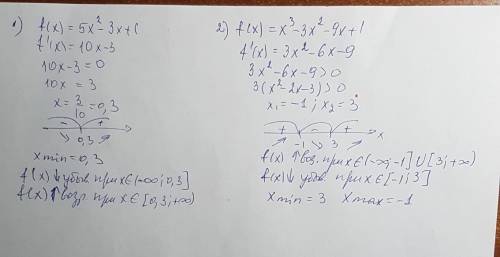 1) f(x) = 5x² - 3x + 1
f'(x) = 10x - 3
10x - 3 = 0
10x = 3
x = 3/10 = 0,3
- +
0,3
x min = 0,3
f(x) ↓ убыв. при x ∈ (-∞; 0,3]
f(x) ↑ возр. при x ∈ [0,3; +∞)
2) f(x) = x³ - 3x² - 9x + 1
f'(x) = 3x² - 6x - 9
3x² - 6x - 9 > 0
3(x² - 2x - 3) > 0
x₁ = -1; x₂ = 3
+ - +
-1 3 x
f(x) ↑ воз. при x ∈ (-∞; -1] U [3; +∞)
f(x) ↓ убыв. при x ∈ [-1; 3]
x min = 3 x max = -1